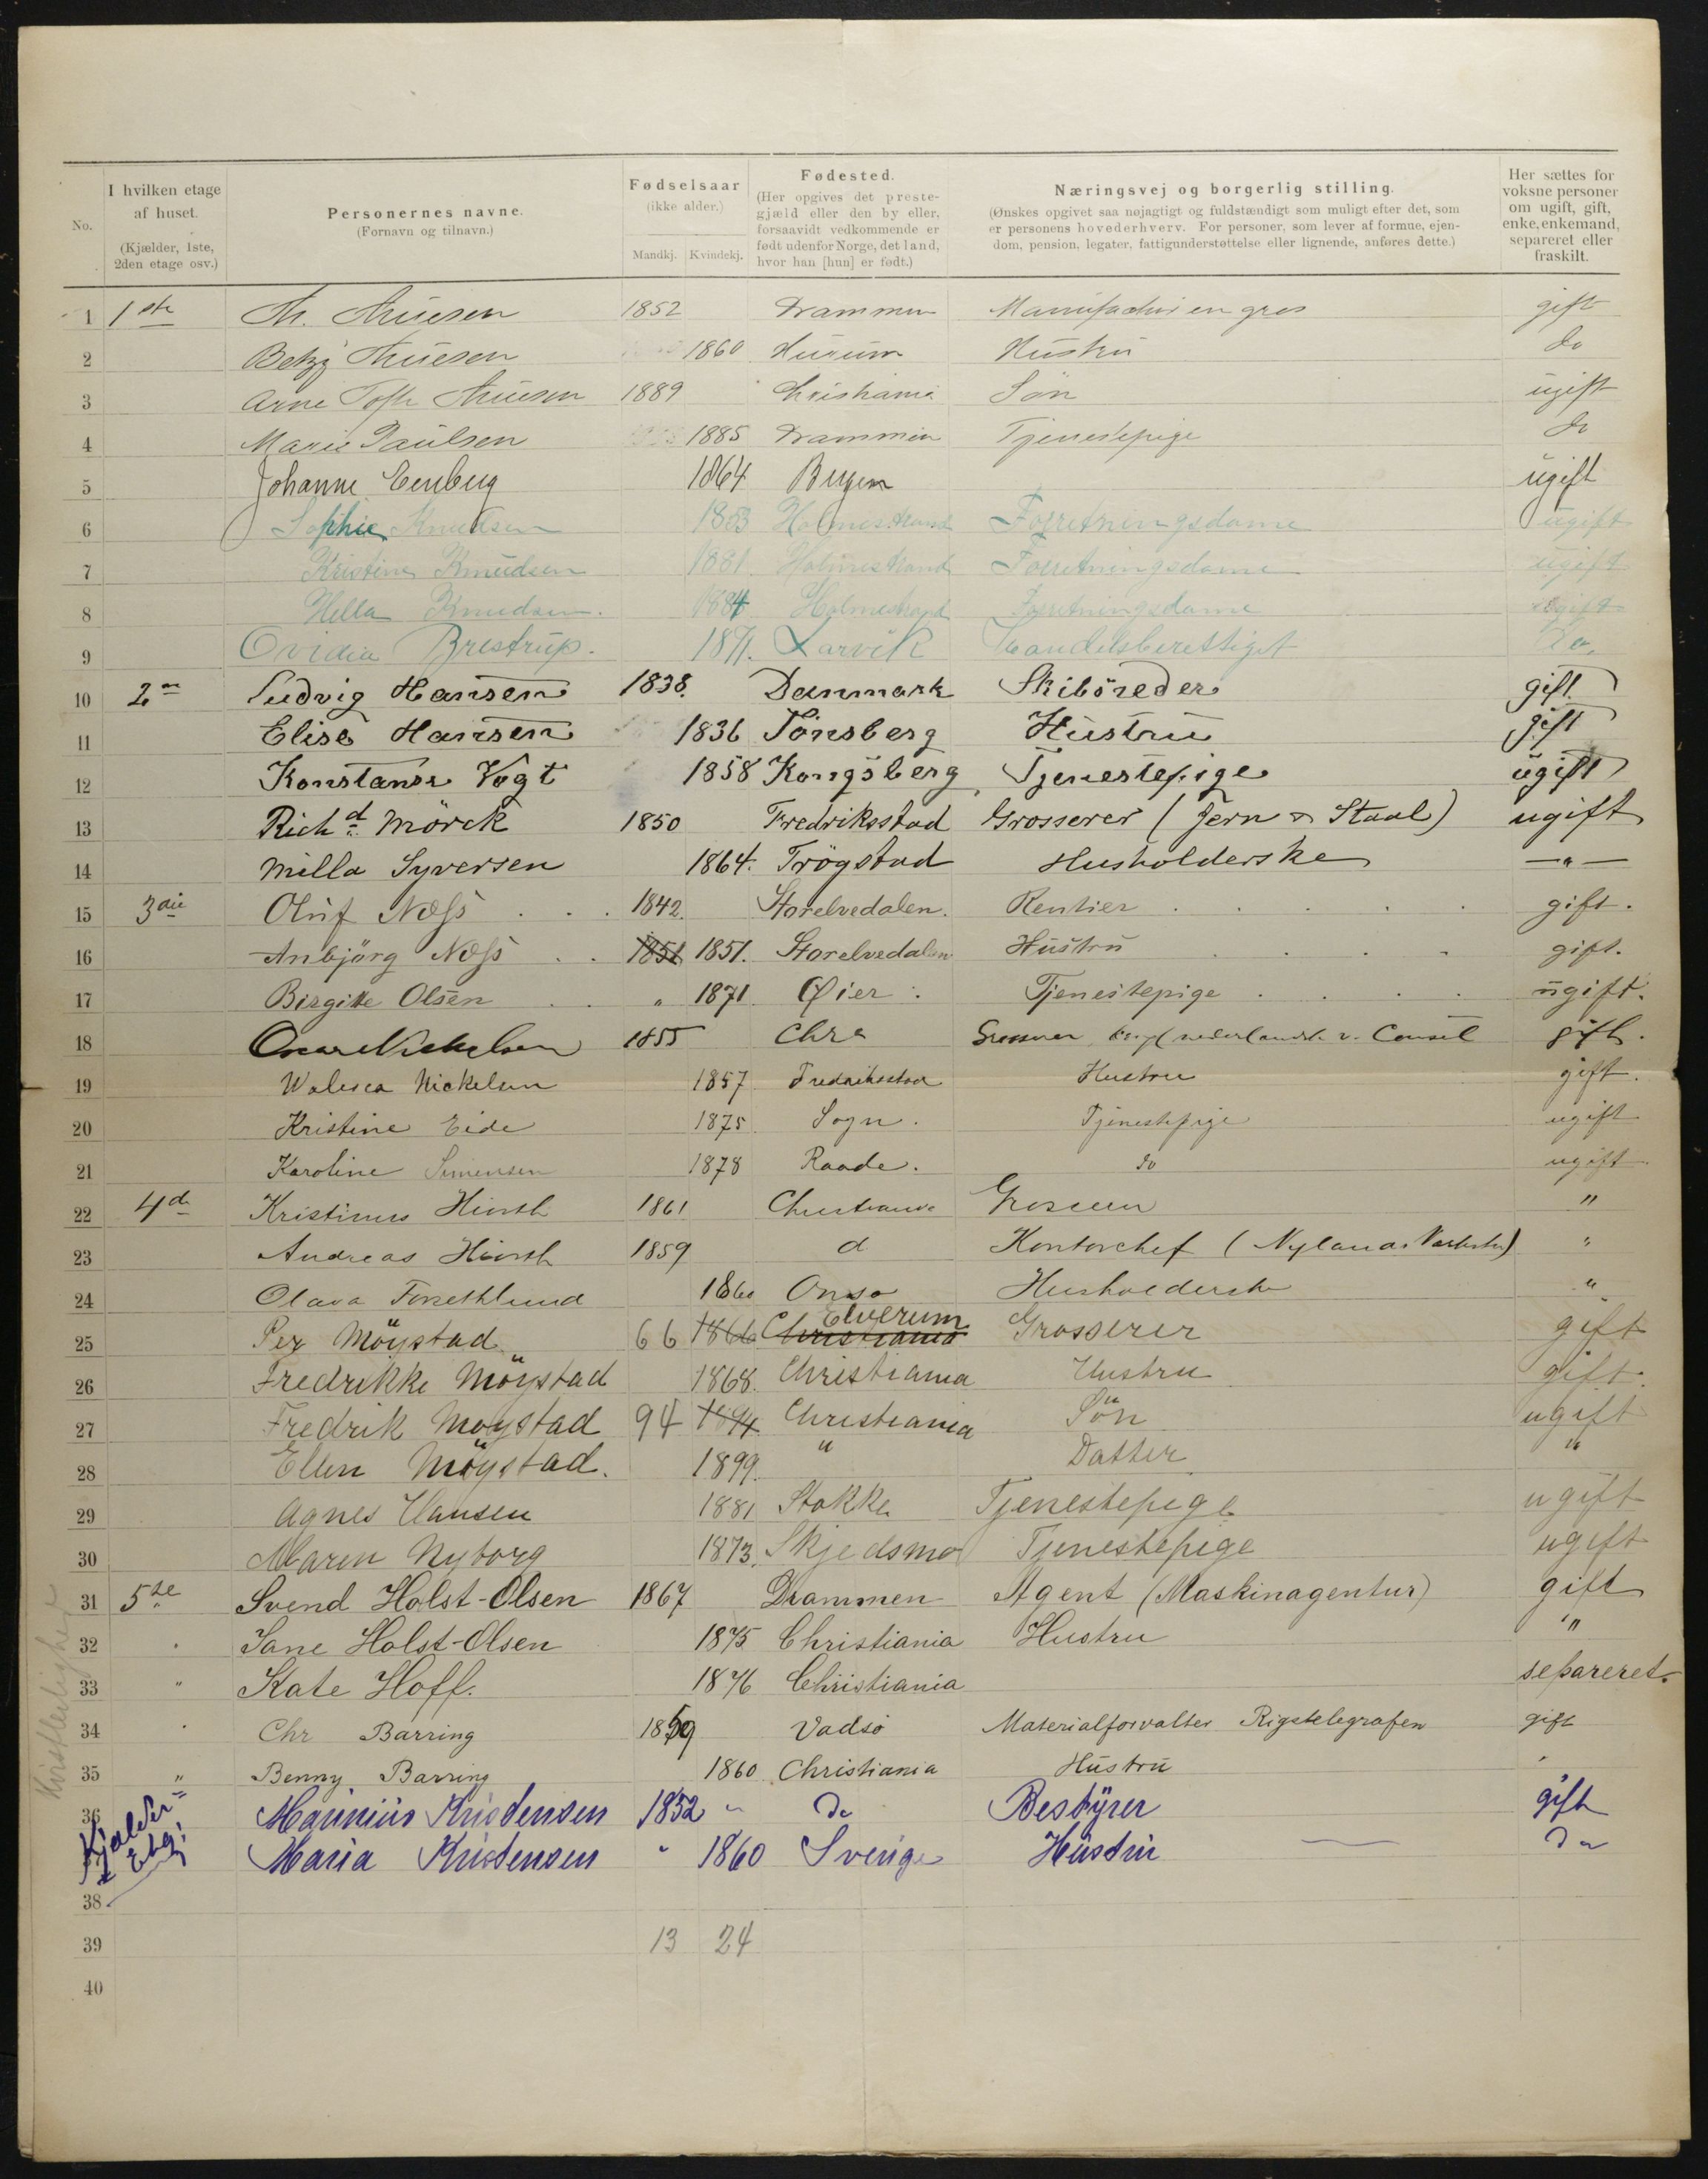 No.
I hvilken etage af huset. (Kjælder, 1ste, 2den etage osv.)
Personernes navne. (Fornavn og tilnavn.)
Fødselsaar (ikke alder.) Mandkj. Kvindekj.
Fødested. (Her opgives det prestegjæld eller den by eller, forsaavidt vedkommende er født udenfor Norge, det land, hvor han [hun] er født.)
Næringsvej og borgerlig stilling. (Ønskes opgivet saa nøjagtigt og fuldstændigt som muligt efter det, som er personens hovederhverv. For personer, som lever af formue, ejendom, pension, legater, fattigunderstøttelse eller lignende, anføres dette.)
Her sættes for voksne personer om ugift, gift, enke, enkemand, separeret eller fraskilt.
1 1ste Th. Thuesen 1852 Drammen Manufactur en gros gift
2 Betzy Thuesen 1860 Hurum Hustru do
3 Arne Toft Thuesen 1889 Christiania Søn ugift
4 Marie Paulsen 1885 Drammen Tjenestepige do
5 Johanne 1864 Bergen ugift
6 Sophie Knudsen 1853 Holmestrand Forretningsdame ugift
7 Kristine Knudsen 1881 Holmestrand Forretningsdame ugift
8 Hella Knudsen. 1884 Holmestrand Forretningsdame ugift
9 Ovidia Brestrup. 1871. Larvik Handelsberettiget Do.
10 2en Ludvig Hansen 1838. Danmark Skibsreder gift
11 Elise Hansen 1836 Tönsberg Hustru gift
12 Konstance Vogt 1858 Kongsberg Tjenestepige ugift
13 Richd. Mörck 1850 Fredriksstad Grosserer (Jern & Staal) ugift
14 Milla Syversen 1864. Trögstad Husholderske — " —
15 3die Oluf Næss . . . 1842. Storelvedalen. Rentier . . . . . gift.
16 Anbjörg Næss . . 1851 1851. Storelvedalen Hustru . . . . gift.
17 Birgitte Olsen . . " 1871. Øier . Tjenestepige . . . . ugift.
18 Oscar Nickelsen 1855 Chra Grosserer, nederlandsk v. Consul gift.
19 Walesca Nickelsen 1857 Fredriksstad Hustru gift.
20 Kristine Eide 1875 Sogn. Tjenestepige ugift
21 Karoline Simensen 1878 Raade. do ugift
22 4de Kristinus Hiorth 1861 Christiania Grosserer "
23 Andreas Hiorth 1859 d Kontorchef (Nylands Værksted) "
24 Olava 1860 Onsø Husholderske "
25 Per Möystad 66 1866 Christiania Elverum Grosserer gift
26 Fredrikke Möystad 1868. Christiania Hustru gift.
27 Fredrik Moystad 94 1894 Christiania Sön ugift
28 Ellen Möystad. 1899. " Datter "
29 Agnes Hansen 1881 Stokke Tjenestepige ugift
30 Maren Nyborg 1873. Skjedsmo Tjenestepige ugift
31 5te Svend Holst-Olsen 1867 Drammen Agent (Maskinagentur) gift
32 " Jane Holst-Olsen 1875 Christiania Hustru "
33 " Kate Hoff. 1876 Christiania separeret.
34 " Chr Barring 1859 Vadsö Materialforvalter Rigstelegrafen gift
35 " Benny Barring 1860 Christiania Hustru "
36 Kjælder= Marinius Kristensen 1852 " Do Bestyrer gift
Etg: Maria Kristensen " 1860 Sverige Hustru — Do
38
39 13 24
40